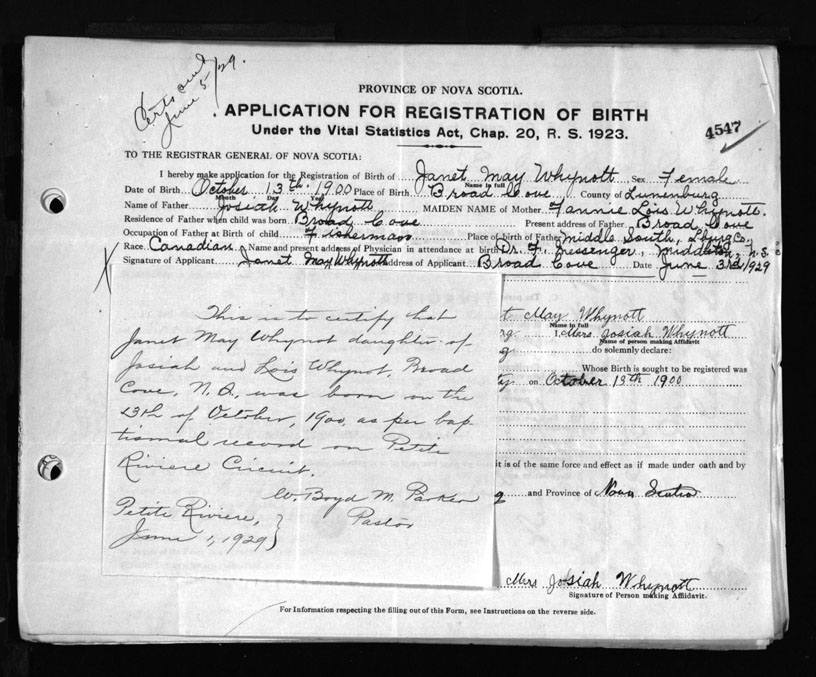 Certs sent
June 5/29.
PROVINCE OF NOVA SCOTIA.
APPLICATION FOR REGISTRATION OF BIRTH
Under the Vital Statistics Act, Chap. 20, R. S. 1923.
4547
TO THE REGISTRAR GENERAL OF NOVA SCOTIA:
I hereby make application for the Registration of Birth of Janet May Whynott Sex Female
Name in full
Date of Birth October 13th 1900 Place of Birth Broad Cove County of Lunenburg
Month Day Year
Name of Father Josiah Whynott MAIDEN NAME of Mother Fannie Lois Whynott.
Residence of Father when child was born Broad Cove Present address of Father Broad Cove
Occupation of Father at Birth of child Fisherman Place of birth of Father Middle South, Co.
Race Canadian Name and present address of Physician in attendance at birth Dr. F. Messenger, Middleton, N.S.
Signature of Applicant Janet May Whynott Address of Applicant Broad Cove Date June 3rd 1929
This is to certify that
Janet May Whynot daughter of
Josiah and Lois Whynot, Broad
Cove, N.S., was born on the
13th of October, 1900, as per bap
tismal record on Petite
Riviere Circuit.
W. Boyd M. Parker
Pastor
Petite Riviere,
June 1, 1929
t May Whynott
Name in full
I, Mrs Josiah Whynott
Name of person making Affidavit
do solemnly declare:
Whose Birth is sought to be registered was
on October 13th 1900
it is of the same force and effect as if made under oath and by
and Province of Nova Scotia
Mrs Josiah Whynott
Signature of Person making Affidavit.
For Information respecting the filling out of this Form, see Instructions on the reverse side.